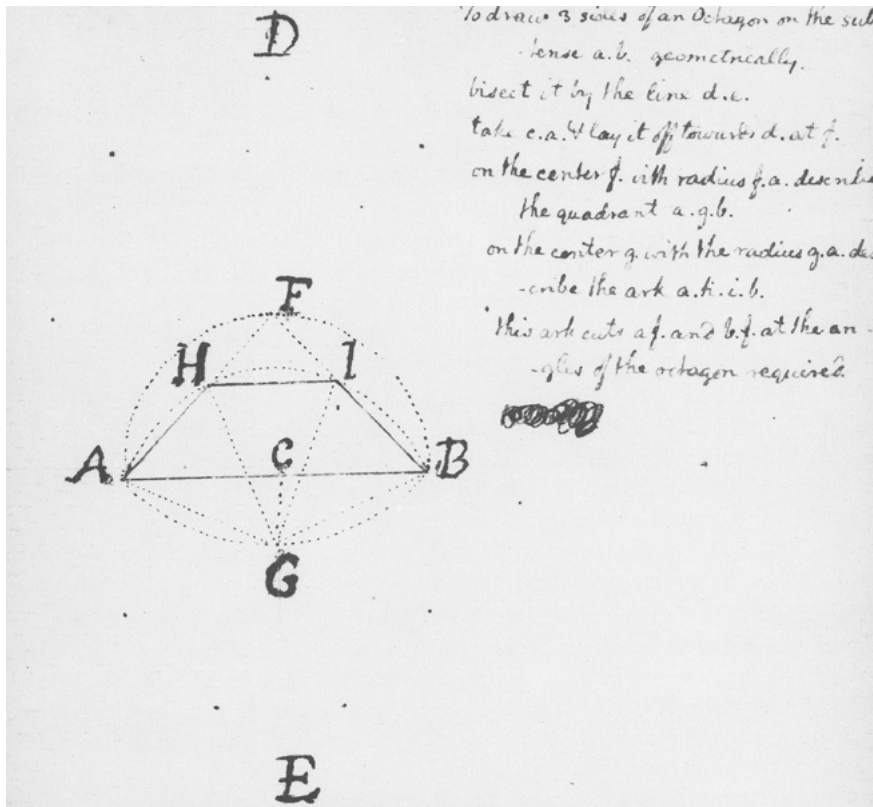 D
To draw 3 sides of an Octagon on the sub
-tense a.b. geometrically.
bisect it by the line d.e.
take c.a. & lay it off towards d. at f.
on the center f. with radius f.a. describe
the quadrant a.g.b.
on the center g. with the radius g.a. des
-cribe the ark a.h.i.b.
this ark cuts a f. and b.f. at the an-
-gles of the octagon required.
F
H
I
A
C
B
G
E